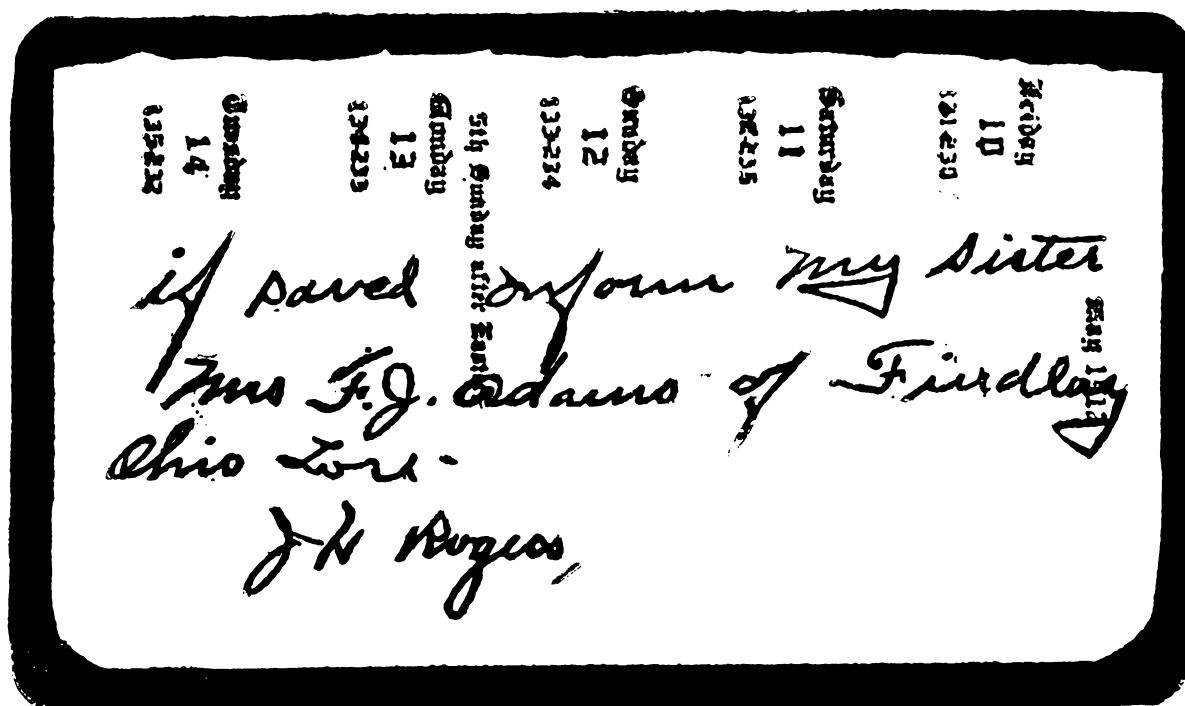 Friday
10
Saturday
11
132-235
Sunday
12
133-234
5th Sunday after East
Monday
13
134-233
Tuesday
14
135-232
May 1912
if saved inform my sister
Mrs F.J. Adams of Findlay
Ohio Lost -
J H Rogers